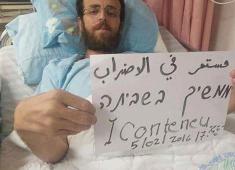 مستمر في الاضراب
ממשיך בשביתה
I Conteneu
5/02/2016